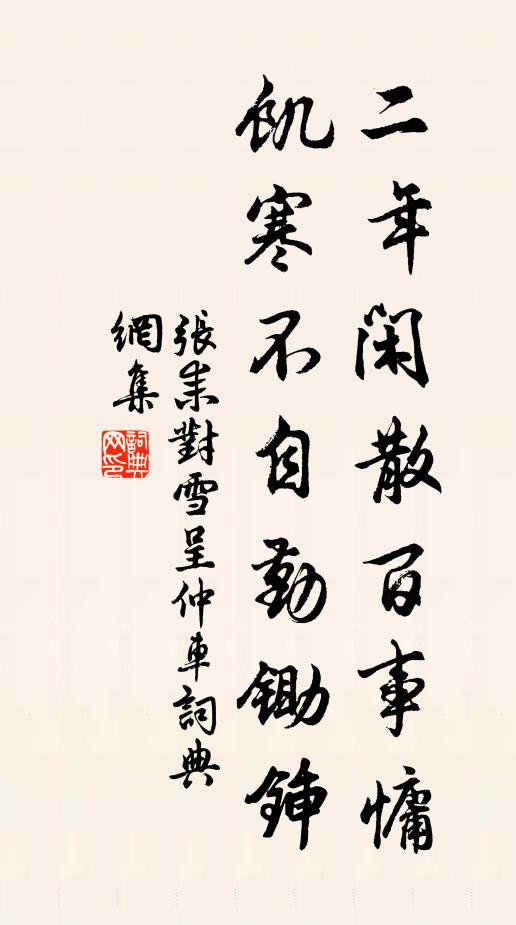 二年閑散百事慵
飢寒不自勤鋤鍤
張耒對雪呈仲車詞典
網集
詞典
网印